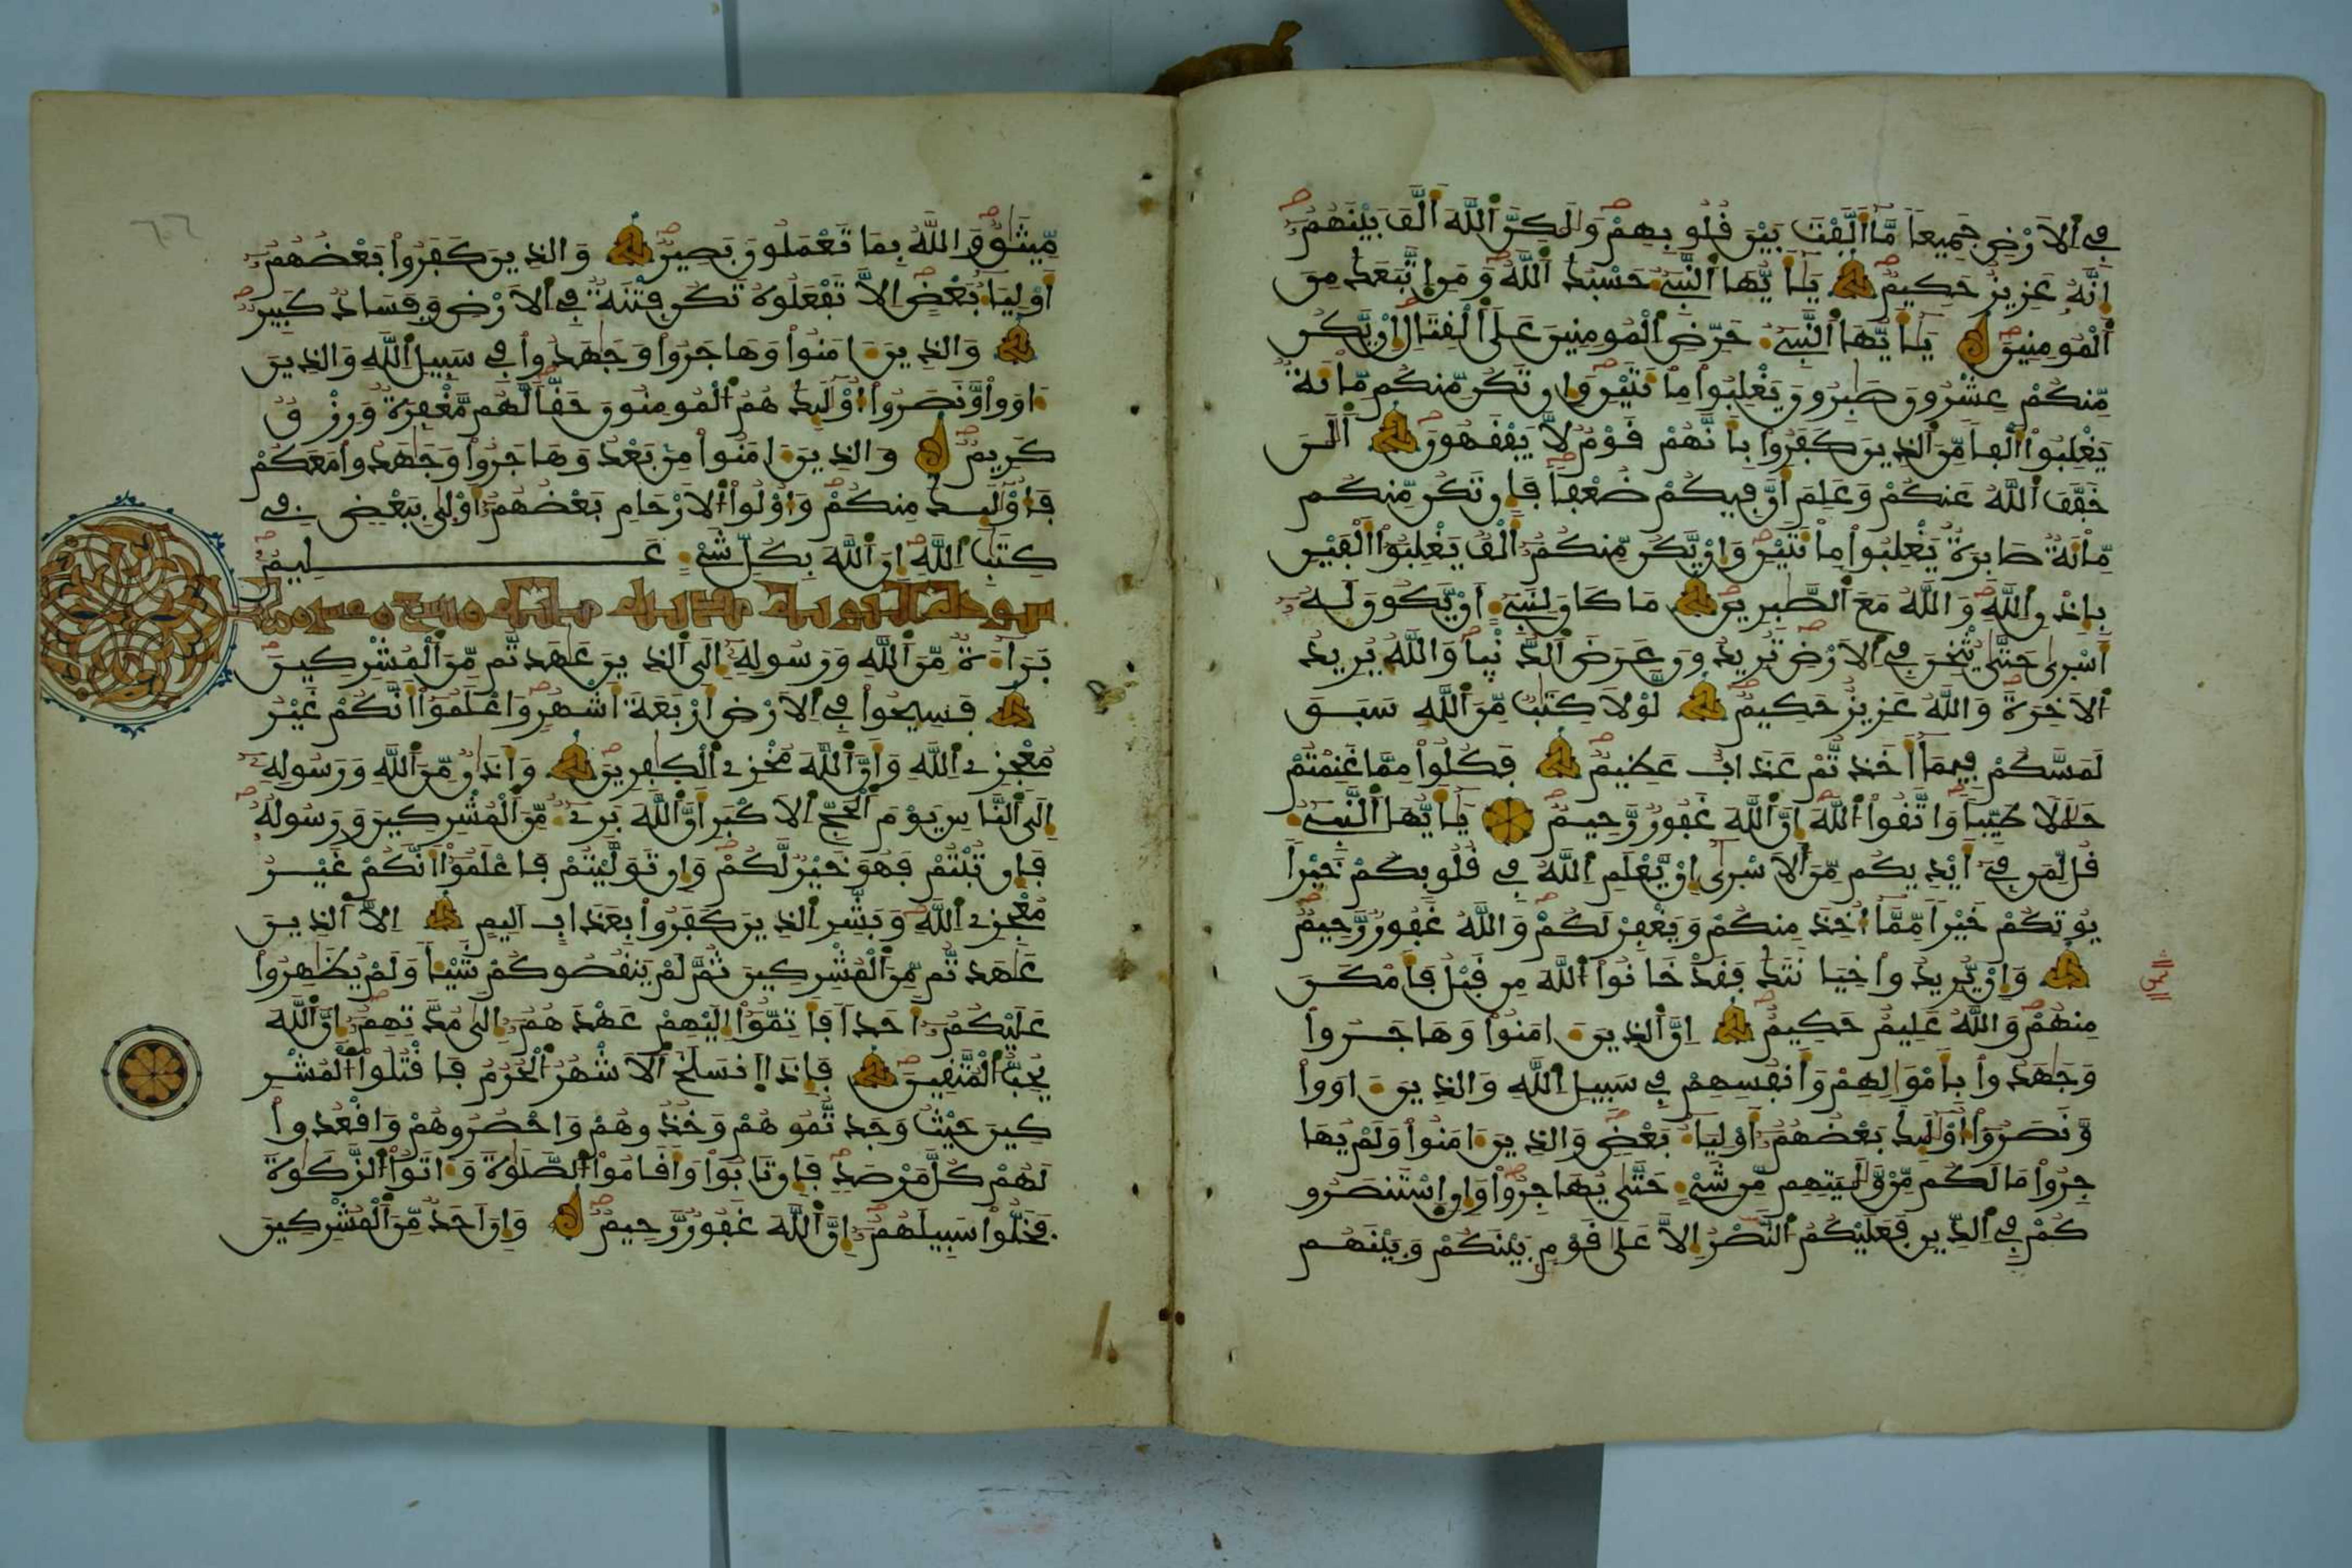 فِي اَلَارْضِ جَمِيعاً مَّا أَلَّفْتَ بَيْنَ قُلُوبِهِمْ وَلَٰكِنَّ اَللَّهَ أَلَّفَ بَيْنَهُمُۥ
إِنَّهُۥ عَزِيزٌ حَكِيمٌ يَٰأَيُّهَا اَلنَّبِيءُ حَسْبُكَ اَللَّهُ وَمَنِ اِتَّبَعَكَ مِنَ
اَلْمُومِنِينَ يَٰأَيُّهَا اَلنَّبِيءُ حَرِّضِ اِلْمُومِنِينَ عَلَى اَلْقِتَالِ إِنْ يَّكُن
مِّنكُمْ عِشْرُونَ صَٰبِرُونَ يَغْلِبُوا مِاْئَتَيْنِ وَإِن تَكُن مِّنكُم مِّاْئَةٌ
يَغْلِبُوا أَلْفاً مِّنَ اَلذِينَ كَفَرُوا بِأَنَّهُمْ قَوْمٌ لَّا يَفْقَهُونَ اَلَٰنَ
خَفَّفَ اَللَّهُ عَنكُمْ وَعَلِمَ أَنَّ فِيكُمْ ضُعْفاً فَإِن تَكُن مِّنكُم
مِّاْئَةٌ صَابِرَةٌ يَغْلِبُوا مِاْئَتَيْنِ وَإِنْ يَّكُن مِّنكُمُۥ أَلْفٌ يَغْلِبُوا أَلْفَيْنِ
بِإِذْنِ اِللَّهِ وَاللَّهُ مَعَ اَلصَّٰبِرِينَ مَا كَانَ لِنَبِيءٍ اَنْ يَّكُونَ لَهُۥ
أَسْرَىٰ حَتَّىٰ يُثْخِنَ فِي اِلَارْضِ تُرِيدُونَ عَرَضَ اَلدُّنْيَا وَاللَّهُ يُرِيدُ
اُلَاخِرَةَ وَاللَّهُ عَزِيزٌ حَكِيمٌ لَّوْلَا كِتَٰبٌ مِّنَ اَللَّهِ سَبَقَ
لَمَسَّكُمْ فِيمَا أَخَذتُّمْ عَذَابٌ عَظِيمٌ فَكُلُوا مِمَّا غَنِمْتُمْ
حَلَٰلاً طَيِّباً وَاتَّقُوا اُللَّهَ إِنَّ اَللَّهَ غَفُورٌ رَّحِيمٌ يَٰأَيُّهَا اَلنَّبِيءُ
قُل لِّمَن فِي أَيْدِيكُم مِّنَ اَلَاسْرَىٰ إِنْ يَّعْلَمِ اِللَّهُ فِي قُلُوبِكُمْ خَيْراً
يُوتِكُمْ خَيْراً مِّمَّا أُخِذَ مِنكُمْ وَيَغْفِرْ لَكُمْ وَاللَّهُ غَفُورٌ رَّحِيمٌ
وَإِنْ يُّرِيدُوا خِيَانَتَكَ فَقَدْ خَانُوا اُللَّهَ مِن قَبْلُ فَأَمْكَنَ
مِنْهُمْ وَاللَّهُ عَلِيمٌ حَكِيمٌ اِنَّ اَلذِينَ ءَامَنُوا وَهَاجَرُوا
وَجَٰهَدُوا بِأَمْوَٰلِهِمْ وَأَنفُسِهِمْ فِي سَبِيلِ اِللَّهِ وَالذِينَ ءَاوَوا
وَّنَصَرُوا أُوْلَٰئِكَ بَعْضُهُمُۥ أَوْلِيَاءُ بَعْضٍ وَالذِينَ ءَامَنُوا وَلَمْ يُهَا
جِرُوا مَا لَكُم مِّنْ وَّلَٰيَتِهِم مِّن شَيْءٍ حَتَّىٰ يُهَاجِرُوا وَإِنِ اِسْتَنصَرُو
كُمْ فِي اِلدِّينِ فَعَلَيْكُمُ اُلنَّصْرُ إِلَّا عَلَىٰ قَوْمٍ بَيْنَكُمْ وَبَيْنَهُم
مِّيثَٰقٌ وَاللَّهُ بِمَا تَعْمَلُونَ بَصِيرٌ وَالذِينَ كَفَرُوا بَعْضُهُمُۥ
أَوْلِيَاءُ بَعْضٍ اِلَّا تَفْعَلُوهُ تَكُن فِتْنَةٌ فِي اِلَارْضِ وَفَسَادٌ كَبِيرٌ
وَالذِينَ ءَامَنُوا وَهَاجَرُوا وَجَٰهَدُوا فِي سَبِيلِ اِللَّهِ وَالذِينَ
ءَاوَوا وَّنَصَرُوا أُوْلَٰئِكَ هُمُ اُلْمُومِنُونَ حَقّاً لَّهُم مَّغْفِرَةٌ وَرِزْقٌ
كَرِيمٌ وَالذِينَ ءَامَنُوا مِنۢ بَعْدُ وَهَاجَرُوا وَجَٰهَدُوا مَعَكُمْ
فَأُوْلَٰئِكَ مِنكُمْ وَأُوْلُوا اُلَارْحَامِ بَعْضُهُمُۥ أَوْلَىٰ بِبَعْضٍ فِي
كِتَٰبِ اِللَّهِ إِنَّ اَللَّهَ بِكُلِّ شَيْءٍ عَلِيمٌ
بَرَاءَةٌ مِّنَ اَللَّهِ وَرَسُولِهِۦ إِلَى اَلذِينَ عَٰهَدتُّم مِّنَ اَلْمُشْرِكِينَ
فَسِيحُوا فِي اِلَارْضِ أَرْبَعَةَ أَشْهُرٍ وَاعْلَمُوا أَنَّكُمْ غَيْرُ
مُعْجِزِي اِللَّهِ وَأَنَّ اَللَّهَ مُخْزِي اِلْكٰفِرِينَ وَأَذَٰنٌ مِّنَ اَللَّهِ وَرَسُولِهِۦ
إِلَى اَلنَّاسِ يَوْمَ اَلْحَجِّ اِلَاكْبَرِ أَنَّ اَللَّهَ بَرِيءٌ مِّنَ اَلْمُشْرِكِينَ وَرَسُولُهُۥ
فَإِن تُبْتُمْ فَهُوَ خَيْرٌ لَّكُمْ وَإِن تَوَلَّيْتُمْ فَاعْلَمُوا أَنَّكُمْ غَيْرُ
مُعْجِزِي اِللَّهِ وَبَشِّرِ اِلذِينَ كَفَرُوا بِعَذَابٍ اَلِيمٍ اِلَّا اَلذِينَ
عَٰهَدتُّم مِّنَ اَلْمُشْرِكِينَ ثُمَّ لَمْ يَنقُصُوكُمْ شَيْئاً وَلَمْ يُظَٰهِرُوا
عَلَيْكُمُۥ أَحَداً فَأَتِمُّوا إِلَيْهِمْ عَهْدَهُمُۥ إِلَىٰ مُدَّتِهِمُۥ إِنَّ اَللَّهَ
يُحِبُّ اُلْمُتَّقِينَ فَإِذَا اَنسَلَخَ اَلَاشْهُرُ اُلْحُرُمُ فَاقْتُلُوا اُلْمُشْرِ
كِينَ حَيْثُ وَجَدتُّمُوهُمْ وَخُذُوهُمْ وَاحْصُرُوهُمْ وَاقْعُدُوا
لَهُمْ كُلَّ مَرْصَدٍ فَإِن تَابُوا وَأَقَامُوا اُلصَّلَوٰةَ وَءَاتَوُا اُلزَّكَوٰةَ
فَخَلُّوا سَبِيلَهُمُۥ إِنَّ اَللَّهَ غَفُورٌ رَّحِيمٌ وَإِنَ اَحَدٌ مِّنَ اَلْمُشْرِكِينَ